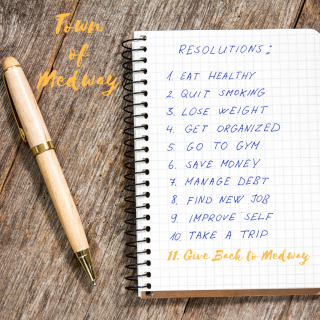 Town
of
Medway
RESOLUTIONS:
1. EAT HEALTHY
2. QUIT SMOKING
3. LOSE WEIGHT
4. GET ORGANIZED
5. GO TO GYM
6. SAVE MONEY
7. MANAGE DEBT
8. FIND NEW JOB
9. IMPROVE SELF
10. TAKE A TRIP
11. Give Back to Medway